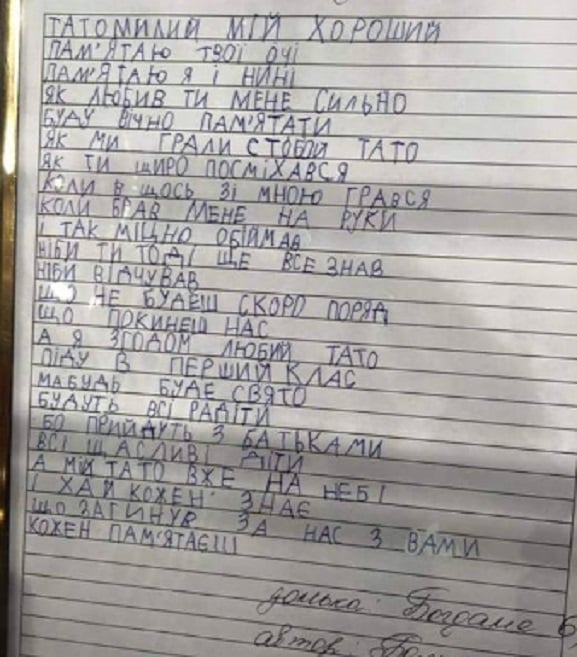 ТАТОМИЛИЙ МІЙ ХОРОШИЙ
ПАМ'ЯТАЮ ТВОЇ ОЧІ
ПАМ'ЯТАЮ Я І НИНІ
ЯК ЛЮБИВ ТИ МЕНЕ СИЛЬНО
БУДУ ВІЧНО ПАМ'ЯТАТИ
ЯК МИ ГРАЛИ СТОБОЙ ТАТО
ЯК ТИ ЩИРО ПОСМІХАВСЯ
КОЛИ В ЩОСЬ ЗІ МНОЮ ГРАВСЯ
КОЛИ БРАВ МЕНЕ НА РУКИ
І ТАК МІЦНО ОБІЙМАВ
НІБИ ТИ ТОДІ ЩЕ ВСЕ ЗНАВ
НІБИ ВІДЧУВАВ
ЩО НЕ БУДЕШ СКОРО ПОРЯД
ЩО ПОКИНЕШ НАС
А Я ЗГОДОМ ЛЮБИЙ ТАТО
ПІДУ В ПЕРШИЙ КЛАС
МАБУДЬ БУДЕ СВЯТО
БУДУТЬ ВСІ РАДІТИ
БО ПРИЙДУТЬ З БАТЬКАМИ
ВСІ ЩАСЛИВІ ДІТИ
А МІЙ ТАТО ВЖЕ НА НЕБІ
І ХАЙ КОЖЕН ЗНАЄ
ЩО ЗАГИНУВ ЗА НАС З ВАМИ
КОЖЕН ПАМ'ЯТАЄШ
донька:
автор: